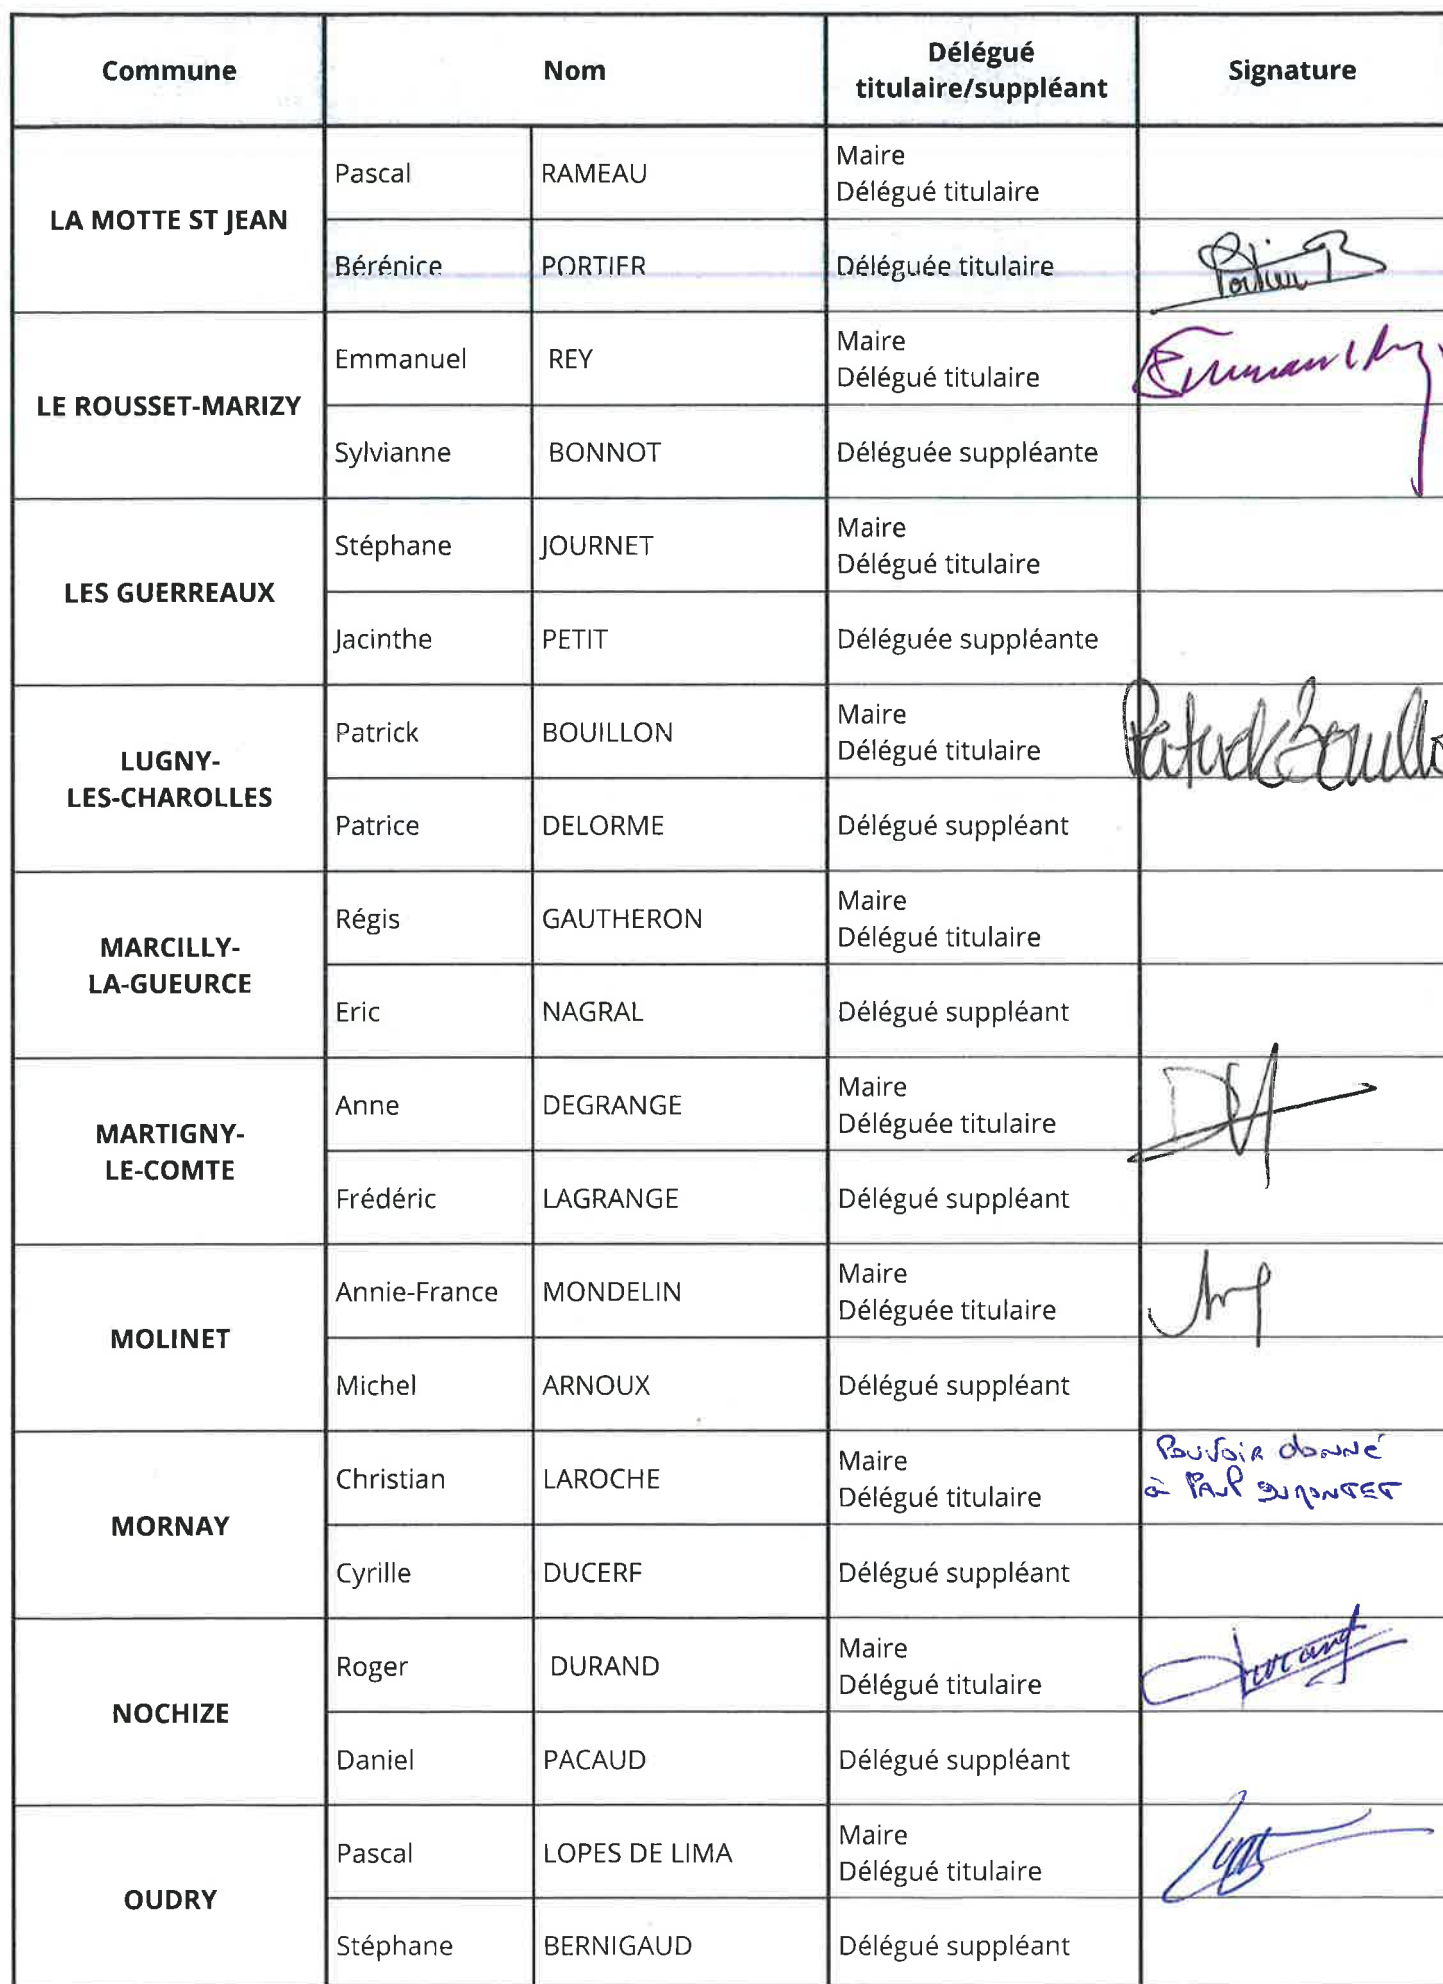 Commune Nom Délégué titulaire/suppléant Signature
LA MOTTE ST JEAN
Pascal RAMEAU Maire
Délégué titulaire
Bérénice PORTIER Déléguée titulaire
Portier B
LE ROUSSET-MARIZY
Emmanuel REY Maire
Délégué titulaire
Emmanuel Rey
Sylvianne BONNOT Déléguée suppléante
LES GUERREAUX
Stéphane JOURNET Maire
Délégué titulaire
Jacinthe PETIT Déléguée suppléante
LUGNY-
LES-CHAROLLES
Patrick BOUILLON Maire
Délégué titulaire
Patrick Bouillo
Patrice DELORME Délégué suppléant
MARCILLY-
LA-GUEURCE
Régis GAUTHERON Maire
Délégué titulaire
Eric NAGRAL Délégué suppléant
MARTIGNY-
LE-COMTE
Anne DEGRANGE Maire
Déléguée titulaire
Frédéric LAGRANGE Délégué suppléant
MOLINET
Annie-France MONDELIN Maire
Déléguée titulaire
Michel ARNOUX Délégué suppléant
MORNAY
Christian LAROCHE Maire
Délégué titulaire
Pouvoir donné
à Paul DUMONTET
Cyrille DUCERF Délégué suppléant
NOCHIZE
Roger DURAND Maire
Délégué titulaire
Durand
Daniel PACAUD Délégué suppléant
OUDRY
Pascal LOPES DE LIMA Maire
Délégué titulaire
Stéphane BERNIGAUD Délégué suppléant